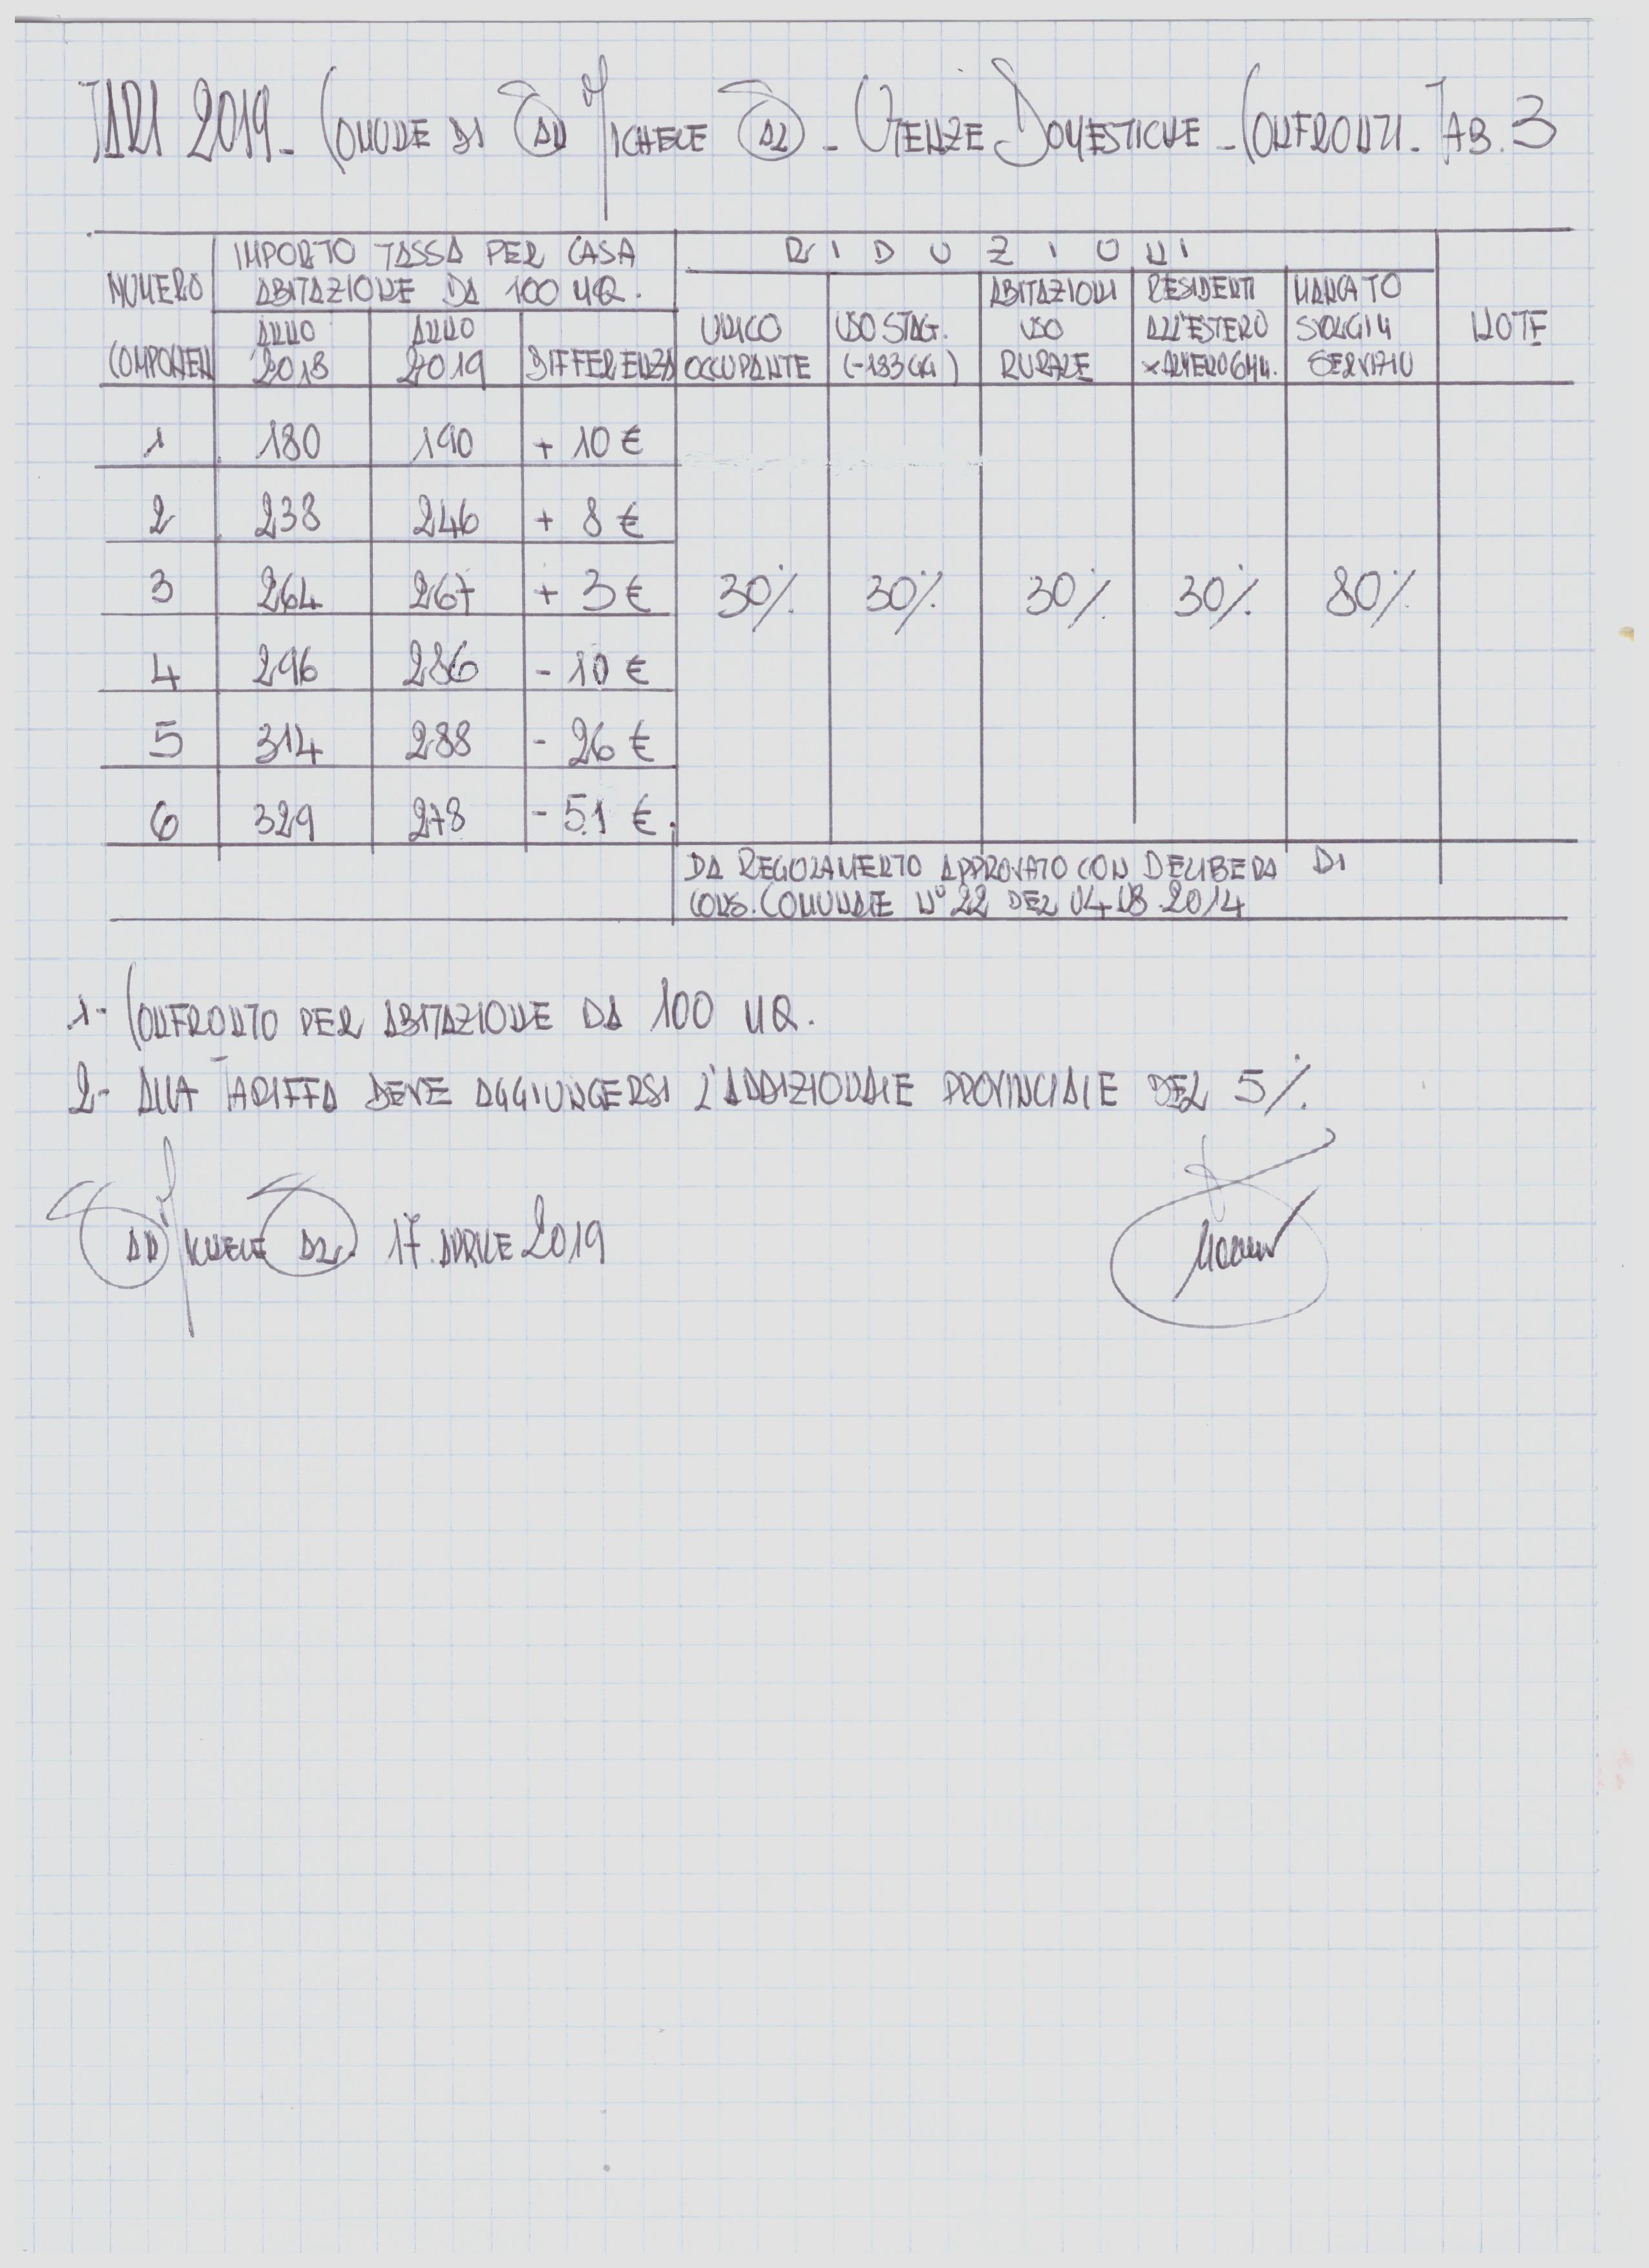 TARI 2019 - COMUNE DI SAN MICHELE SAL. - UTENZE DOMESTICHE - CONFRONTI - TAB. 3
IMPORTO TASSA PER CASA
ABITAZIONE DA 100 MQ.
RIDUZIONI
NUMERO
COMPONEN
ANNO
2018
ANNO
2019
DIFFERENZA
UNICO
OCCUPANTE
USO STAG.
(-183 GG)
ABITAZIONI
USO
RURALE
RESIDENTI
ALL'ESTERO
× ALMENO 6 M.
MANCATO
SVOLGIM
SERVIZIO
NOTE
1 180 190 + 10 €
2 238 246 + 8 €
3 264 267 + 3 € 30% 30% 30% 30% 80%
4 296 286 - 10 €
5 314 288 - 26 €
6 329 278 - 51 €.
DA REGOLAMENTO APPROVATO CON DELIBERA DI
CONS. COMUNALE N° 22 DEL 04.08.2014
1- CONFRONTO PER ABITAZIONE DA 100 MQ.
2- ALLA TARIFFA DEVE AGGIUNGERSI L'ADDIZIONALE PROVINCIALE DEL 5%.
SAN MICHELE SAL. 17. APRILE 2019